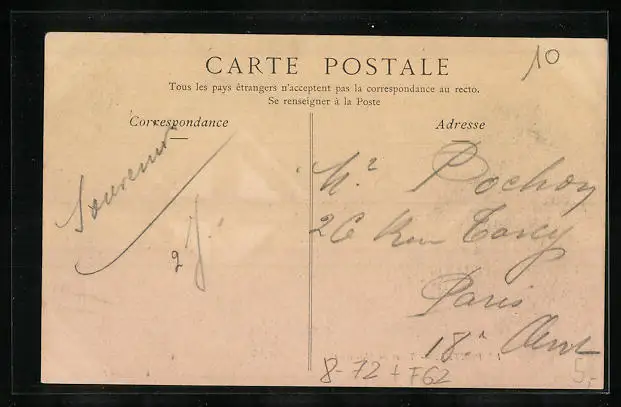 10
CARTE POSTALE
Tous les pays étrangers n'acceptent pas la correspondance au recto.
Se renseigner à la Poste
Correspondance
Adresse
Souvenir
Mr Pochon
26 Rue
Paris
18e
8-72 + F62
5,-